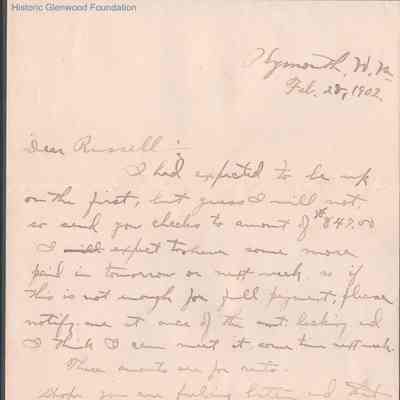 Historic Glenwood Foundation
Plymouth, W. Va
Feb. 28, 1902.
Dear Russell:-
I had expected to be up
on the first, but guess I will not
so send you checks to amount of 847.00
I will expect to have some more
paid in tomorrow or next week, so if
this is not enough for full payment, please
notify me at once of the amt. lacking and
I think I can meet it some time next week.
These amounts are for
hope you are feeling better and that